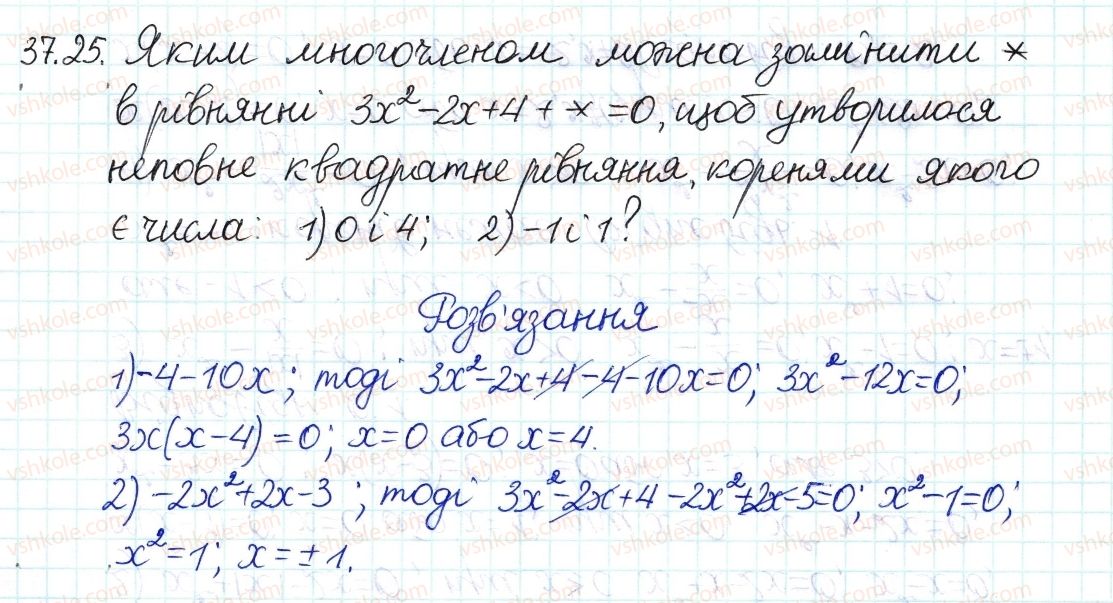 37.25. Яким многочленом можна замінити *
в рівнянні 3x²-2x+4+*=0, щоб утворилося
неповне квадратне рівняння, коренями якого
є числа: 1) 0 і 4; 2) -1 і 1?
Розв'язання
1) -4-10x; тоді 3x²-2x+4-4-10x=0; 3x²-12x=0;
3x(x-4)=0; x=0 або x=4.
2) -2x²+2x-3; тоді 3x²-2x+4-2x²+2x-5=0; x²-1=0;
x²=1; x=±1.